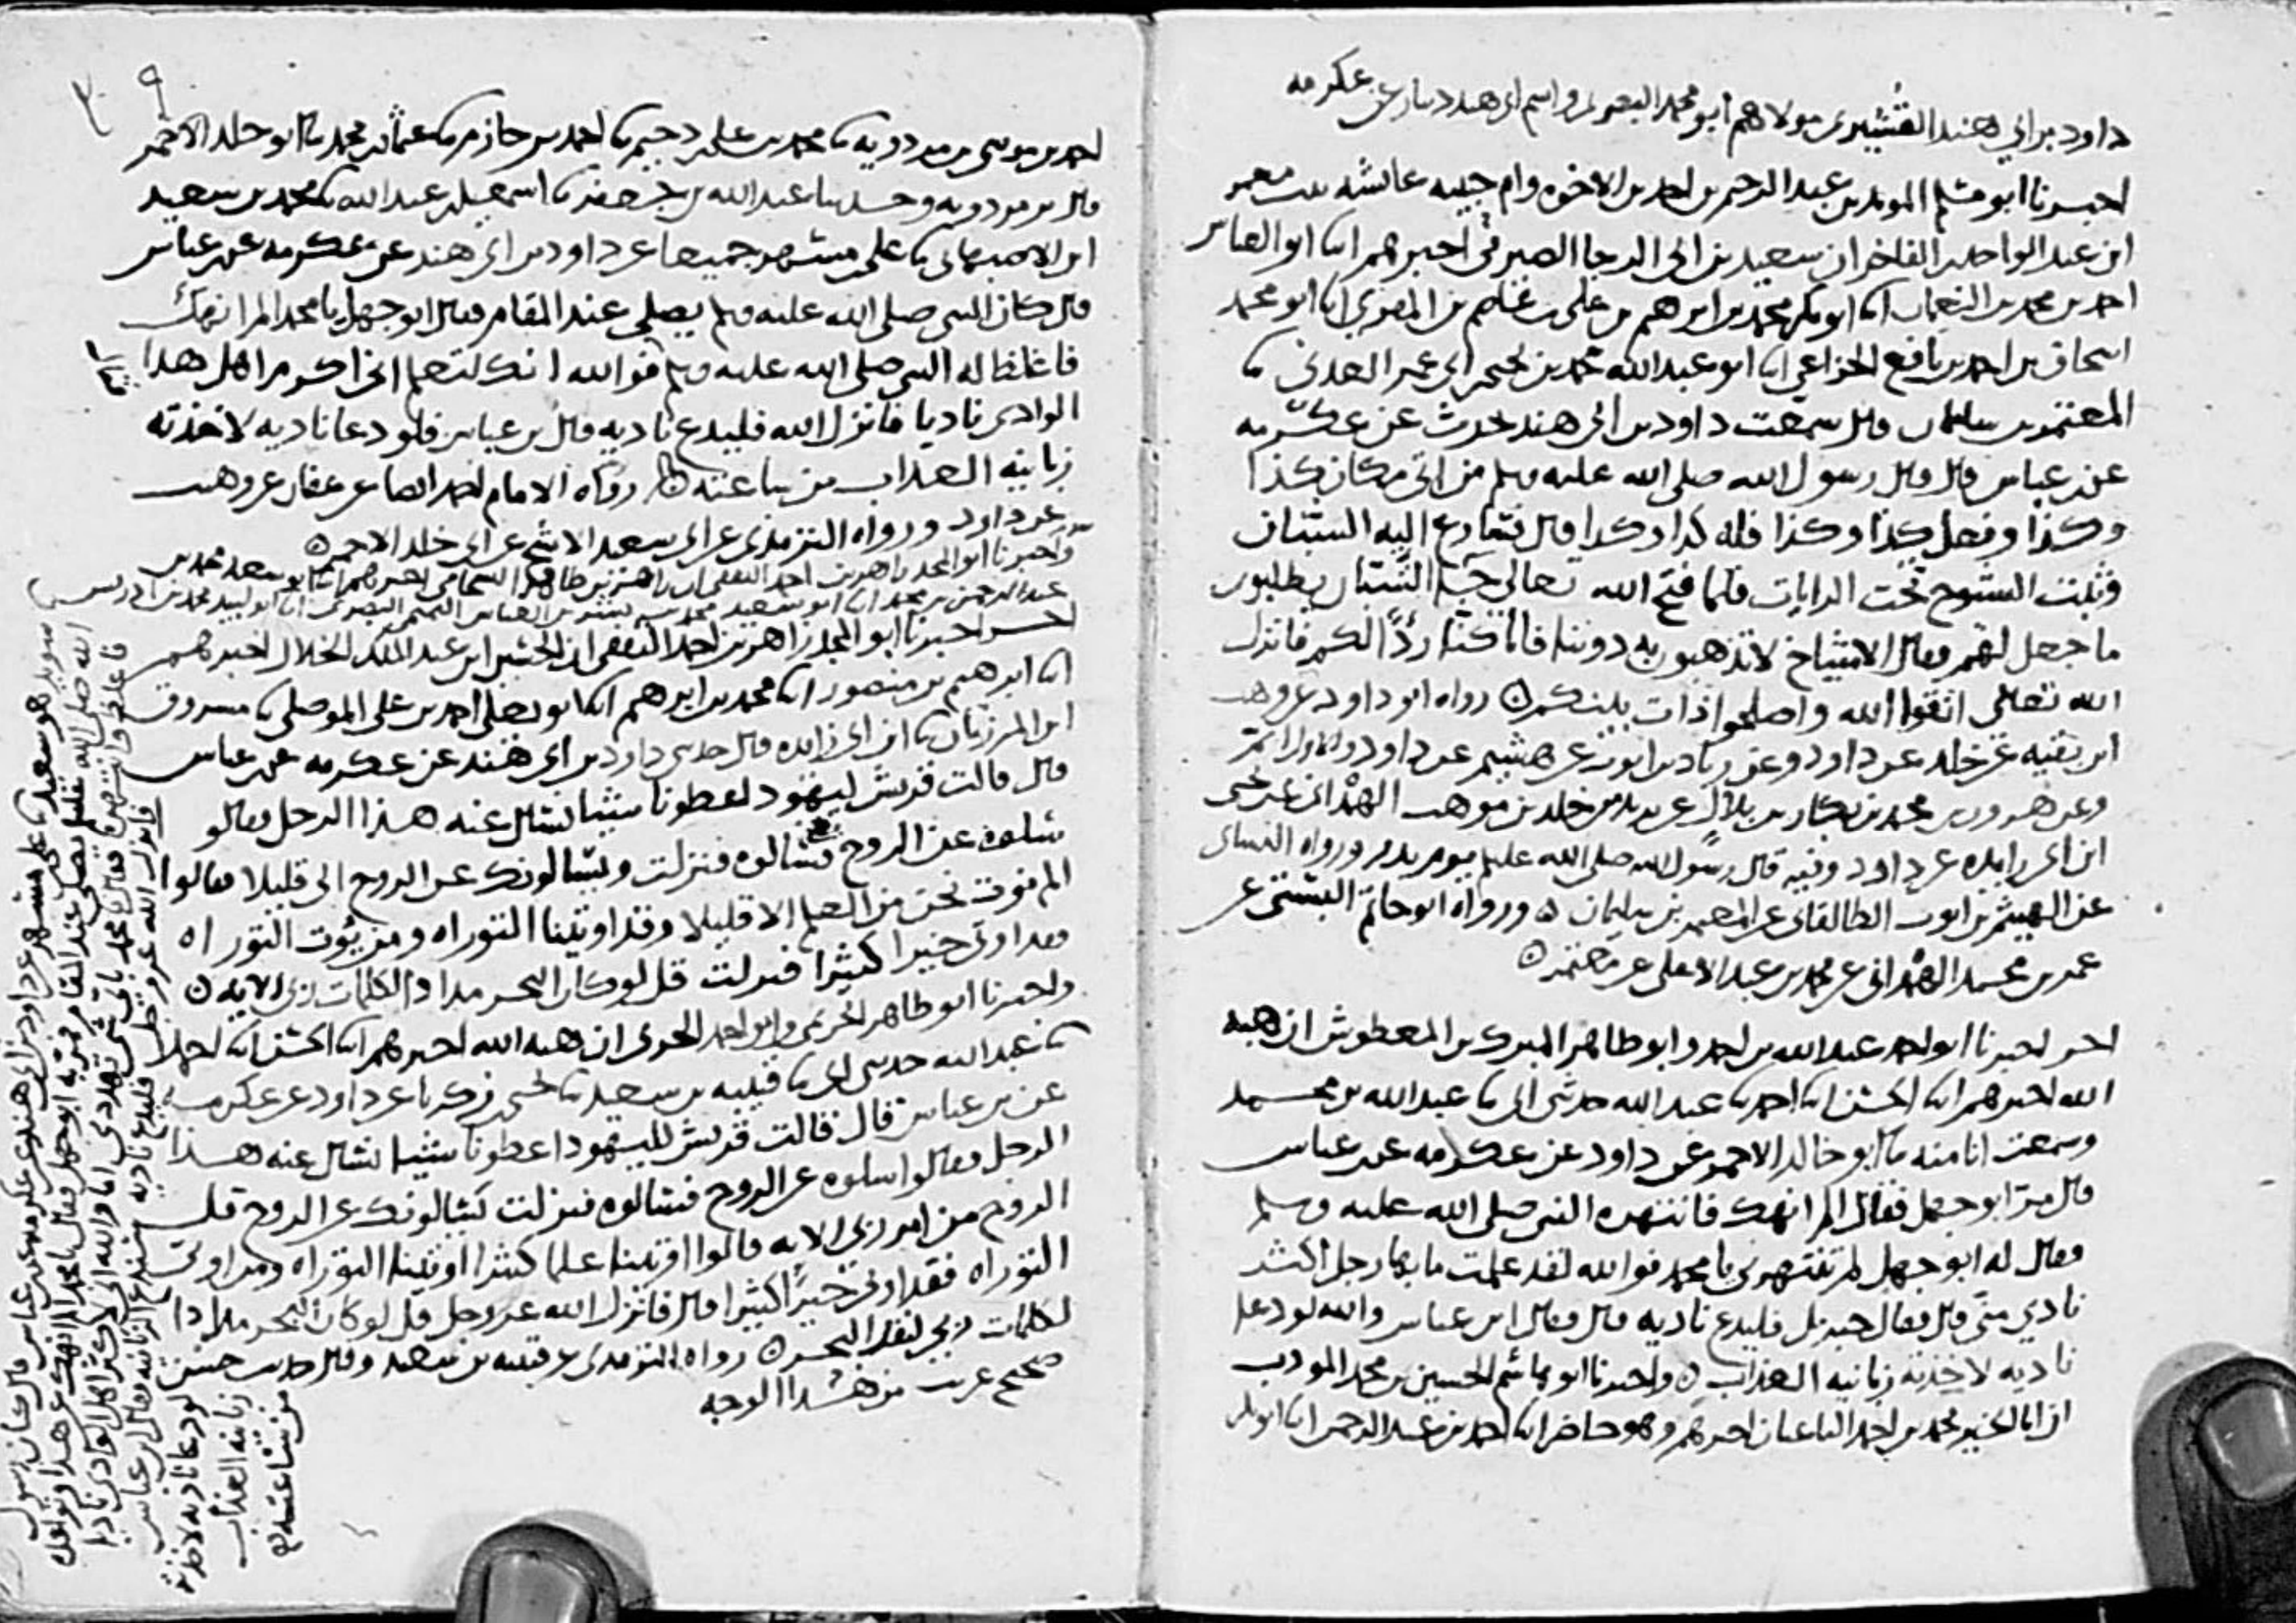 داود بن ابي هند القشيري مولاهم ابو محمد البصري واسم ابي هند دينار عن عكرمه
اخبرنا ابو مسلم المويد بن عبد الرحيم بن احمد بن الاخوه وام حبيبه عائشه بنت معمر
ابن عبد الواحد بن الفاخر ان سعيد بن ابي الرجا الصيرفي اخبرهم ابنا ابو العباس
احمد بن محمد بن النعمان ابنا ابو بكر محمد بن ابرهيم بن علي بن عاصم بن المقري ابنا ابو محمد
اسحاق بن احمد بن نافع الخزاعي ابنا ابو عبد الله محمد بن يحيى بن ابي عمر العدني ثنا
المعتمر بن سليمان قال سمعت داود بن ابي هند يحدث عن عكرمه
عن ابن عباس قال قال رسول الله صلى الله عليه وسلم من اتى مكان كذا
وكذا وفعل كذا وكذا فله كذا وكذا قال فتسارع اليه الشبان
وثبت الشيوخ تحت الرايات فلما فتح الله تعالى جا الشبان يطلبون
ما جعل لهم فقال الاشياخ لا تذهبون به دوننا فانا كنا ردًا لكم فانزل
الله تعالى اتقوا الله واصلحوا ذات بينكم ه رواه ابو داود عن وهب
ابن بقيه عن خلد عن داود وعن زياد بن ايوب عن هشيم عن داود والاول اتم
وعن هرون بن محمد بن بكار بن بلال عن يزيد بن خلد بن موهب الهمداني عن يحيى
ابن ابي زايده عن داود وفيه قال رسول الله صلى الله عليه وسلم يوم بدر ورواه النساي
عن الهيثم بن ايوب الطالقاني عن المعتمر بن سليمان ه ورواه ابو حاتم البستي عن
عمر بن محمد الهمداني عن محمد بن عبد الاعلى عن معتمر ه
اخبرنا ابو احمد عبد الله بن احمد وابو طاهر المبرك بن المعطوش ان هبه
الله اخبرهم ابنا الحسن ابنا احمد ثنا عبد الله حدثني ابي ثنا عبد الله بن محمد
وسمعت انا منه ثنا ابو خالد الاحمر عن داود عن عكرمه عن ابن عباس
قال مر ابو جهل فقال الم انهك فانتهره النبي صلى الله عليه وسلم
فقال له ابو جهل لم تنتهرني يا محمد فوالله لقد علمت ما بها رجل اكثر
نادي مني قال فقال جبريل فليدع ناديه قال فقال ابن عباس والله لو دعا
ناديه لاخذته زبانيه العذاب ه واخبرنا ابو هاشم الحسين بن محمد المودب
ان ابا الخير محمد بن احمد الباغبان اخبرهم وهو حاضر ابنا احمد بن عبد الرحمن ابنا ابو بكر
٣٠٩
احمد بن موسى بن مردويه ثنا محمد بن علي بن دحيم ثنا احمد بن حازم ثنا عثمان بن محمد ثنا ابو خلد الاحمر
قال بن مردويه وحدثنا عبد الله بن جعفر ثنا اسمعيل بن عبد الله ثنا محمد بن سعيد
ابن الاصبهاني ثنا علي بن مسهر جميعا عن داود بن ابي هند عن عكرمه عن ابن عباس
قال كان النبي صلى الله عليه وسلم يصلي عند المقام فقال ابو جهل يا محمد الم انهك
فاغلظ له النبي صلى الله عليه وسلم فوالله انك لتعلم اني اكثر اهل هذا
الوادي ناديا فانزل الله فليدع ناديه قال بن عباس فلو دعا ناديه لاخذته
زبانيه العذاب من ساعته ه رواه الامام احمد ايضا عن عفان عن وهيب
عن داود ورواه الترمذي عن ابي سعيد الاشج عن ابي خلد الاحمر ه
واخبرنا ابو المجد زاهر بن احمد الثقفي ان زاهر بن طاهر الشحامي اخبرهم ابنا ابو سعد محمد بن
عبد الرحمن بن محمد ابنا ابو سعيد محمد بن بشر بن العباس التميمي البصري ابنا ابو لبيد محمد بن ادريس
اخبرنا ابو المجد زاهر بن احمد الثقفي ان الحسين ابن عبد الملك الخلال اخبرهم
ابنا ابرهيم بن منصور ابنا محمد بن ابرهيم ابنا ابو يعلى احمد بن علي الموصلي ثنا مسروق
ابن المرزبان ثنا ابن ابي زايده قال حدثني داود بن ابي هند عن عكرمه عن ابن عباس
قال قالت قريش ليهود اعطونا شيئا نسال عنه هذا الرجل فقالو
سلوه عن الروح فسالوه فنزلت ويسالونك عن الروح الى قليلا فقالوا
الم نوت نحن من العلم الا قليلا وقد اوتينا التوراه ومن يوت التوراه
فقد اوتي خيرا كثيرا فنزلت قل لو كان البحر مدادا لكلمات ربي الايه ه
واخبرنا ابو طاهر الحريمي وابو احمد الحربي ان هبه الله اخبرهم ابنا الحسن ابنا احمد
ثنا عبد الله حدثني ابي ثنا قتيبه بن سعيد ثنا يحيى بن زكريا عن داود عن عكرمه
عن بن عباس قال قالت قريش لليهود اعطونا شيئا نسال عنه هذا
الرجل فقالوا سلوه عن الروح فسالوه فنزلت يسالونك عن الروح قل
الروح من امر ربي الايه قالوا اوتينا علما كثيرا اوتينا التوراه ومن اوتي
التوراه فقد اوتي خيرًا كثيرا قال فانزل الله عز وجل قل لو كان البحر مدادا
لكلمات ربي لنفد البحر ه رواه الترمذي عن قتيبه بن سعيد وقال حديث حسن
صحيح غريب من هذا الوجه
سويد هو بن سعيد ثنا علي بن مسهر عن داود بن ابي هند عن عكرمه عن ابن عباس قال كان رسول
الله صلى الله عليه وسلم يصلي عند المقام فمر به ابو جهل فقال يا محمد الم انهك عن هذا وتوعده
فاغلظ له وانتهره فقال محمد باي شي تهددني اما والله اني لاكثر اهل الوادي ناديا
فانزل الله عز وجل فليدع ناديه سندع الزبانيه فقال ابن عباس
لو دعا ناديه لاخذته
زبانيه العذاب
من ساعته ه